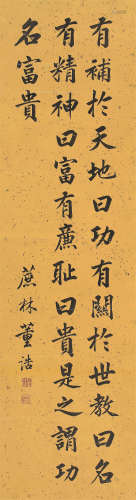 有補於天地曰功有關於世教曰名
有精神曰富有廉耻曰貴是之謂功
名富貴
蔗林董誥